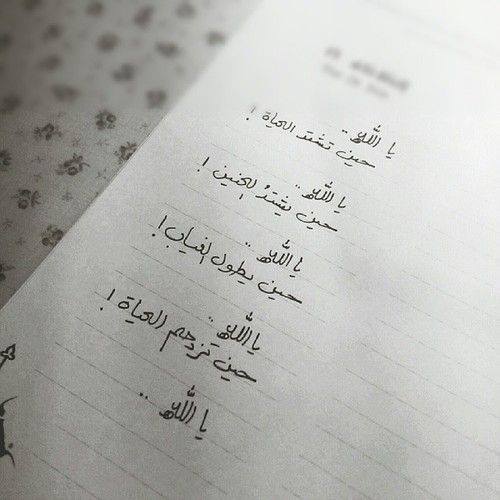 يا الله ..
حين تشتد الحياة !
يا الله ..
حين يشتدُ الحنين !
يا الله ..
حين يطول الغياب !
يا الله ..
حين تزدحم الحياة !
يا الله ..